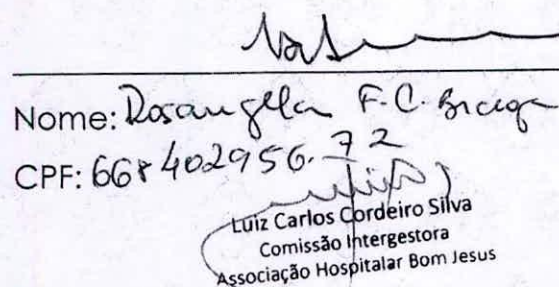 Nome: Rosangella F. C. Braga
CPF: 668 402956.72
Luiz Carlos Cordeiro Silva
Comissão Intergestora
Associação Hospitalar Bom Jesus